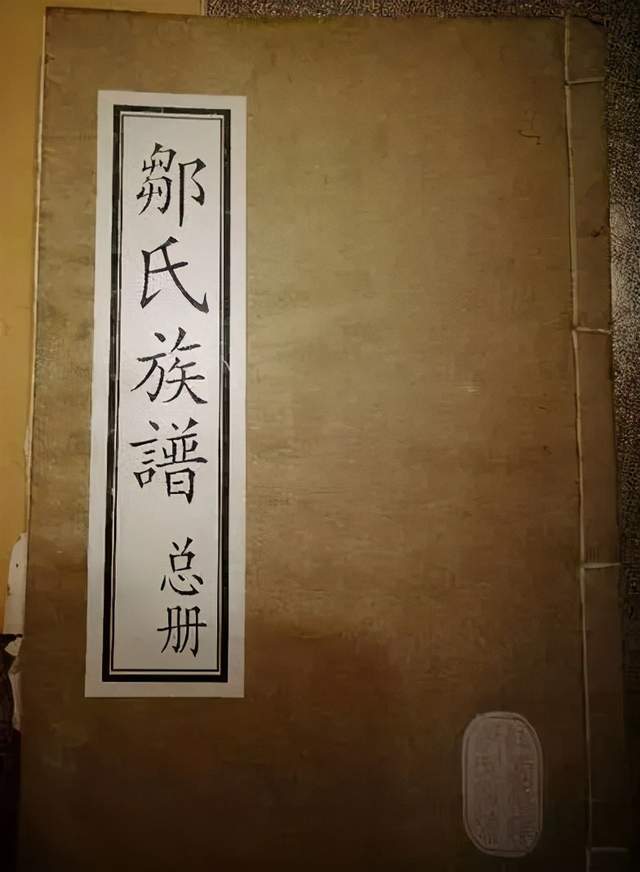 鄒氏族譜
总册